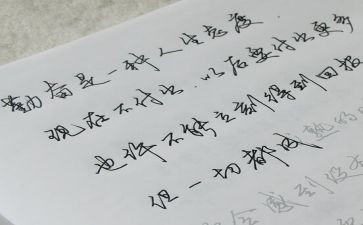 勤奋是一种人生态度
现在不付出.以后要付出更多
也许不能立刻得到回报
但一切都
感到